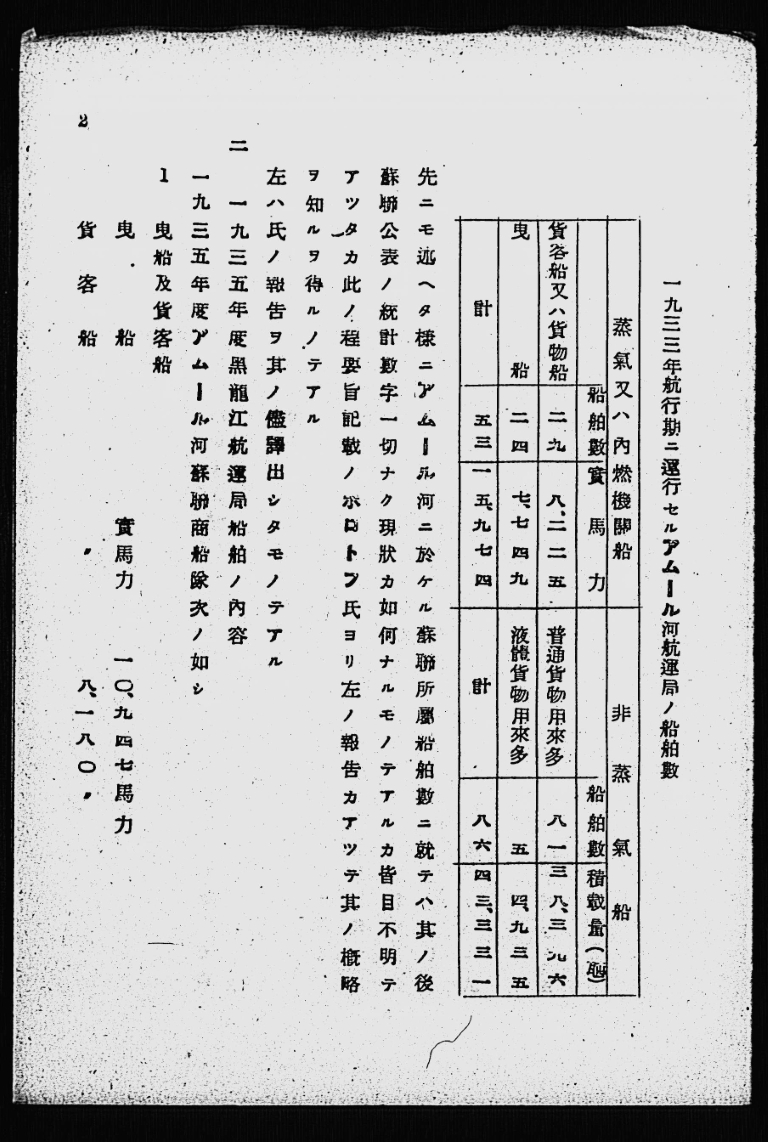 一九三三年航行期ニ運行セルアムール河航運局ノ船舶數
蒸氣又ハ內燃機關船　非蒸氣船
船舶數　實馬力　船舶數　積載量(瓲)
貨客船又ハ貨物船　二九　八、二二五　普通貨物用來多　八一　三八、三九六
曳船　二四　七、七四九　液體貨物用來多　五　四、九三五
計　五三　一五、九七四　計　八六　四三、三三一
先ニモ述ヘタ樣ニアムール河ニ於ケル蘇聯所屬船舶數ニ就テハ其ノ後
蘇聯公表ノ統計數字一切ナク現狀カ如何ナルモノテアルカ皆目不明テ
アツタカ此ノ程要旨記載ノボロトフ氏ヨリ左ノ報告カアツテ其ノ槪略
ヲ知ルヲ得ルノテアル
左ハ氏ノ報告ヲ其ノ儘譯出シタモノテアル
二　一九三五年度黑龍江航運局船舶ノ內容
一九三五年度アムール河蘇聯商船隊次ノ如シ
1　曳船及貨客船
曳船　實馬力　一〇、九四七馬力
貨客船　〃　八、一八〇〃
2